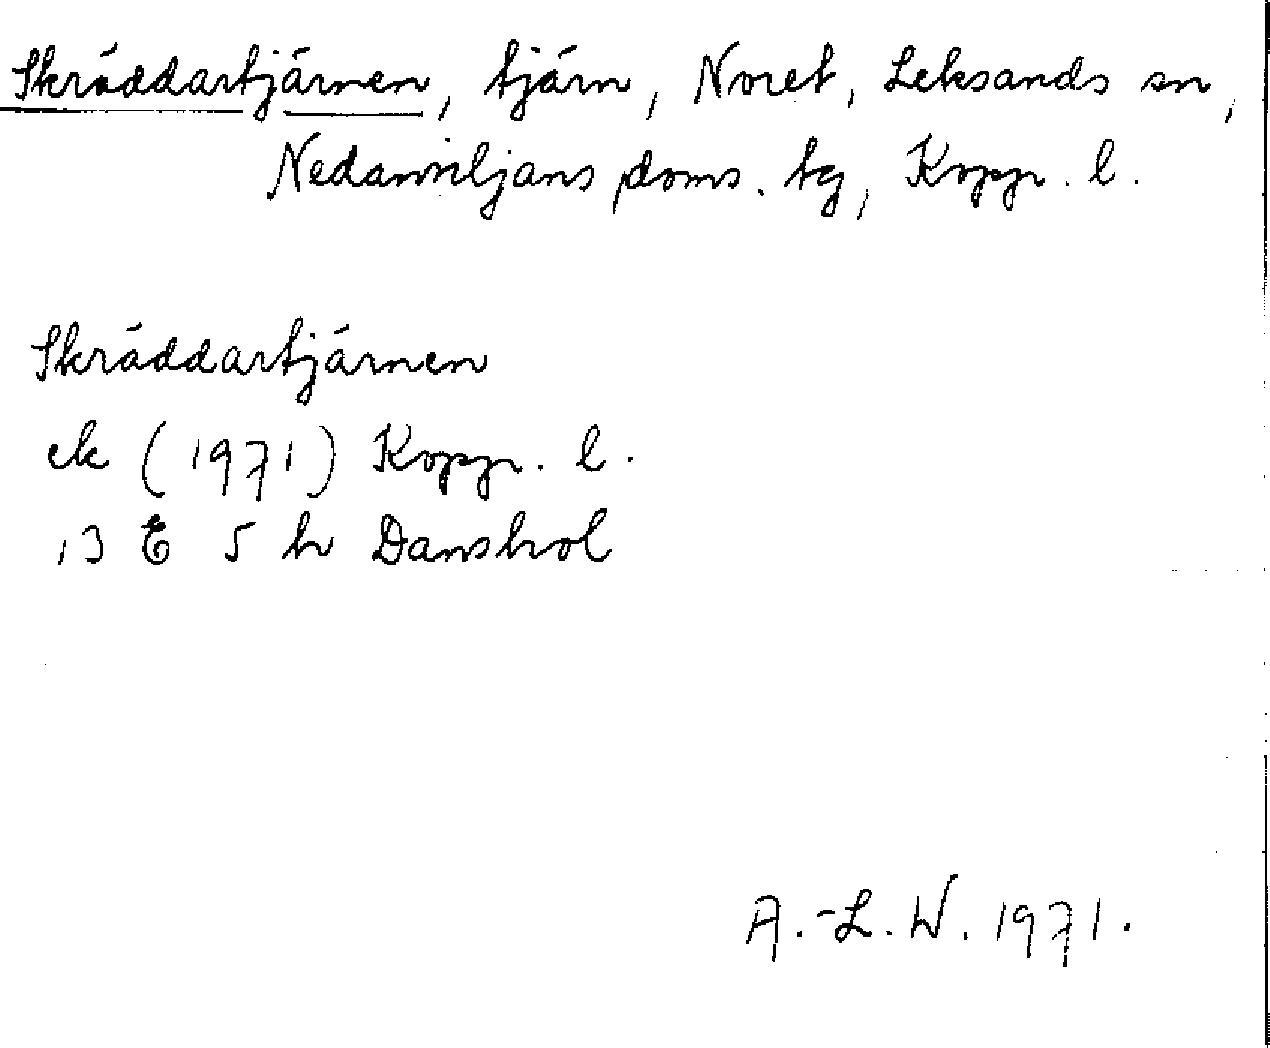 Skräddartjärnen, tjärn, Noret, Leksands sn,
Nedansiljans doms. tg, Kopp. l.
Skräddartjärnen
ek (1971) Kopp. l.
13 E 5 h Danshol
A.-L. W. 1971.